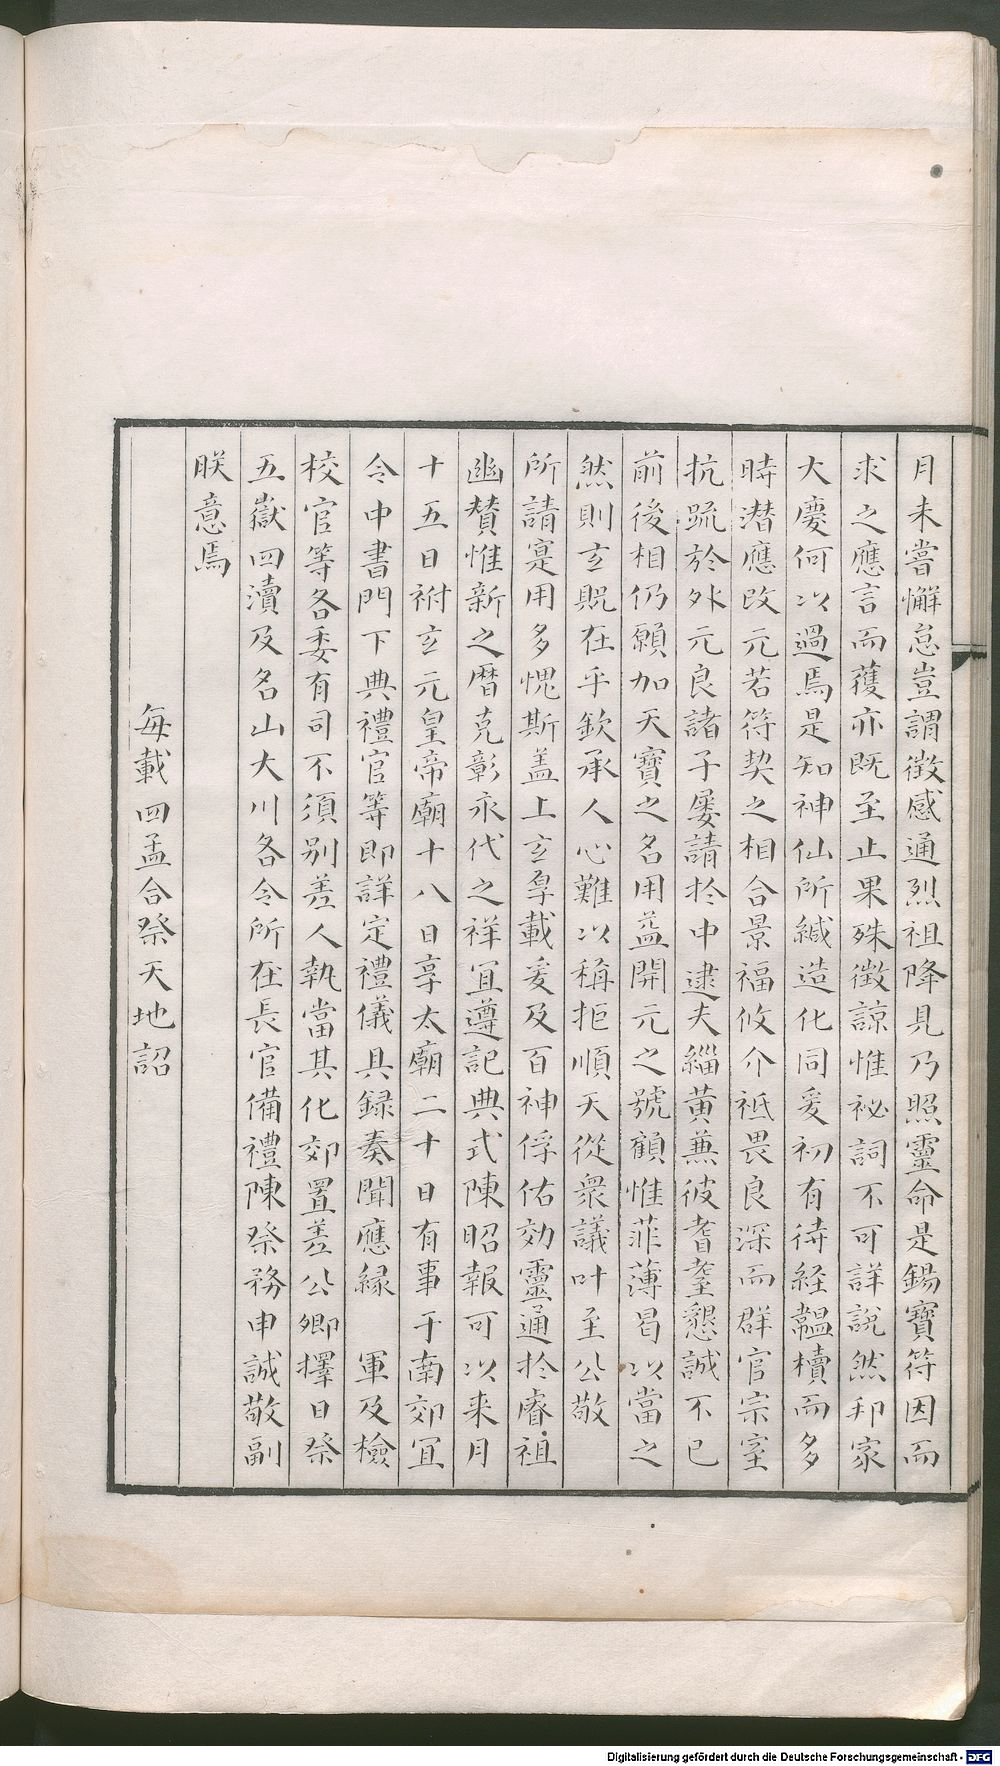 月未嘗懈怠豈謂徴感通烈祖降見乃照靈命是錫寶符因而
求之應言而獲亦既至止果殊徴諒惟祕詞不可詳說然邦家
大慶何以過焉是知神仙所緘造化同爰初有待経韞櫝而多
時潛應改元若符契之相合景福攸介祗畏良深而群官宗室
抗䟽於外元良諸子屢請扵中逮夫緇黃兼彼耆耋懇誠不已
前後相仍願加天寶之名用益開元之號顧惟菲薄曷以當之
然則玄貺在乎欽承人心難以稱拒順天從衆議叶至公敬
所請寔用多愧斯盖上玄㫗載爰及百神俘佑効靈通扵睿祖
幽賛惟新之曆克彰永代之祥宜遵記典式陳昭報可以来月
十五日祔玄元皇帝廟十八日享太廟二十日有事于南郊宜
令中書門下典禮官等即詳定禮儀具録奏聞應縁　軍及檢
校官等各委有司不須别差人執當其化郊置差公卿擇日祭
五嶽四瀆及名山大川各令所在長官備禮陳祭務申誠敬副
朕意焉
每載四孟合祭天地詔
Digitalisierung gefördert durch die Deutsche Forschungsgemeinschaft - DFG